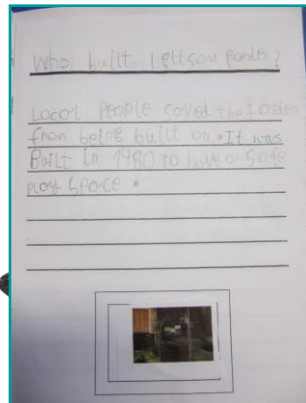 Who built Lettsom Garden?
Local People saved the Garden
from being built on. It was
Built in 1980 to have a safe
play space.